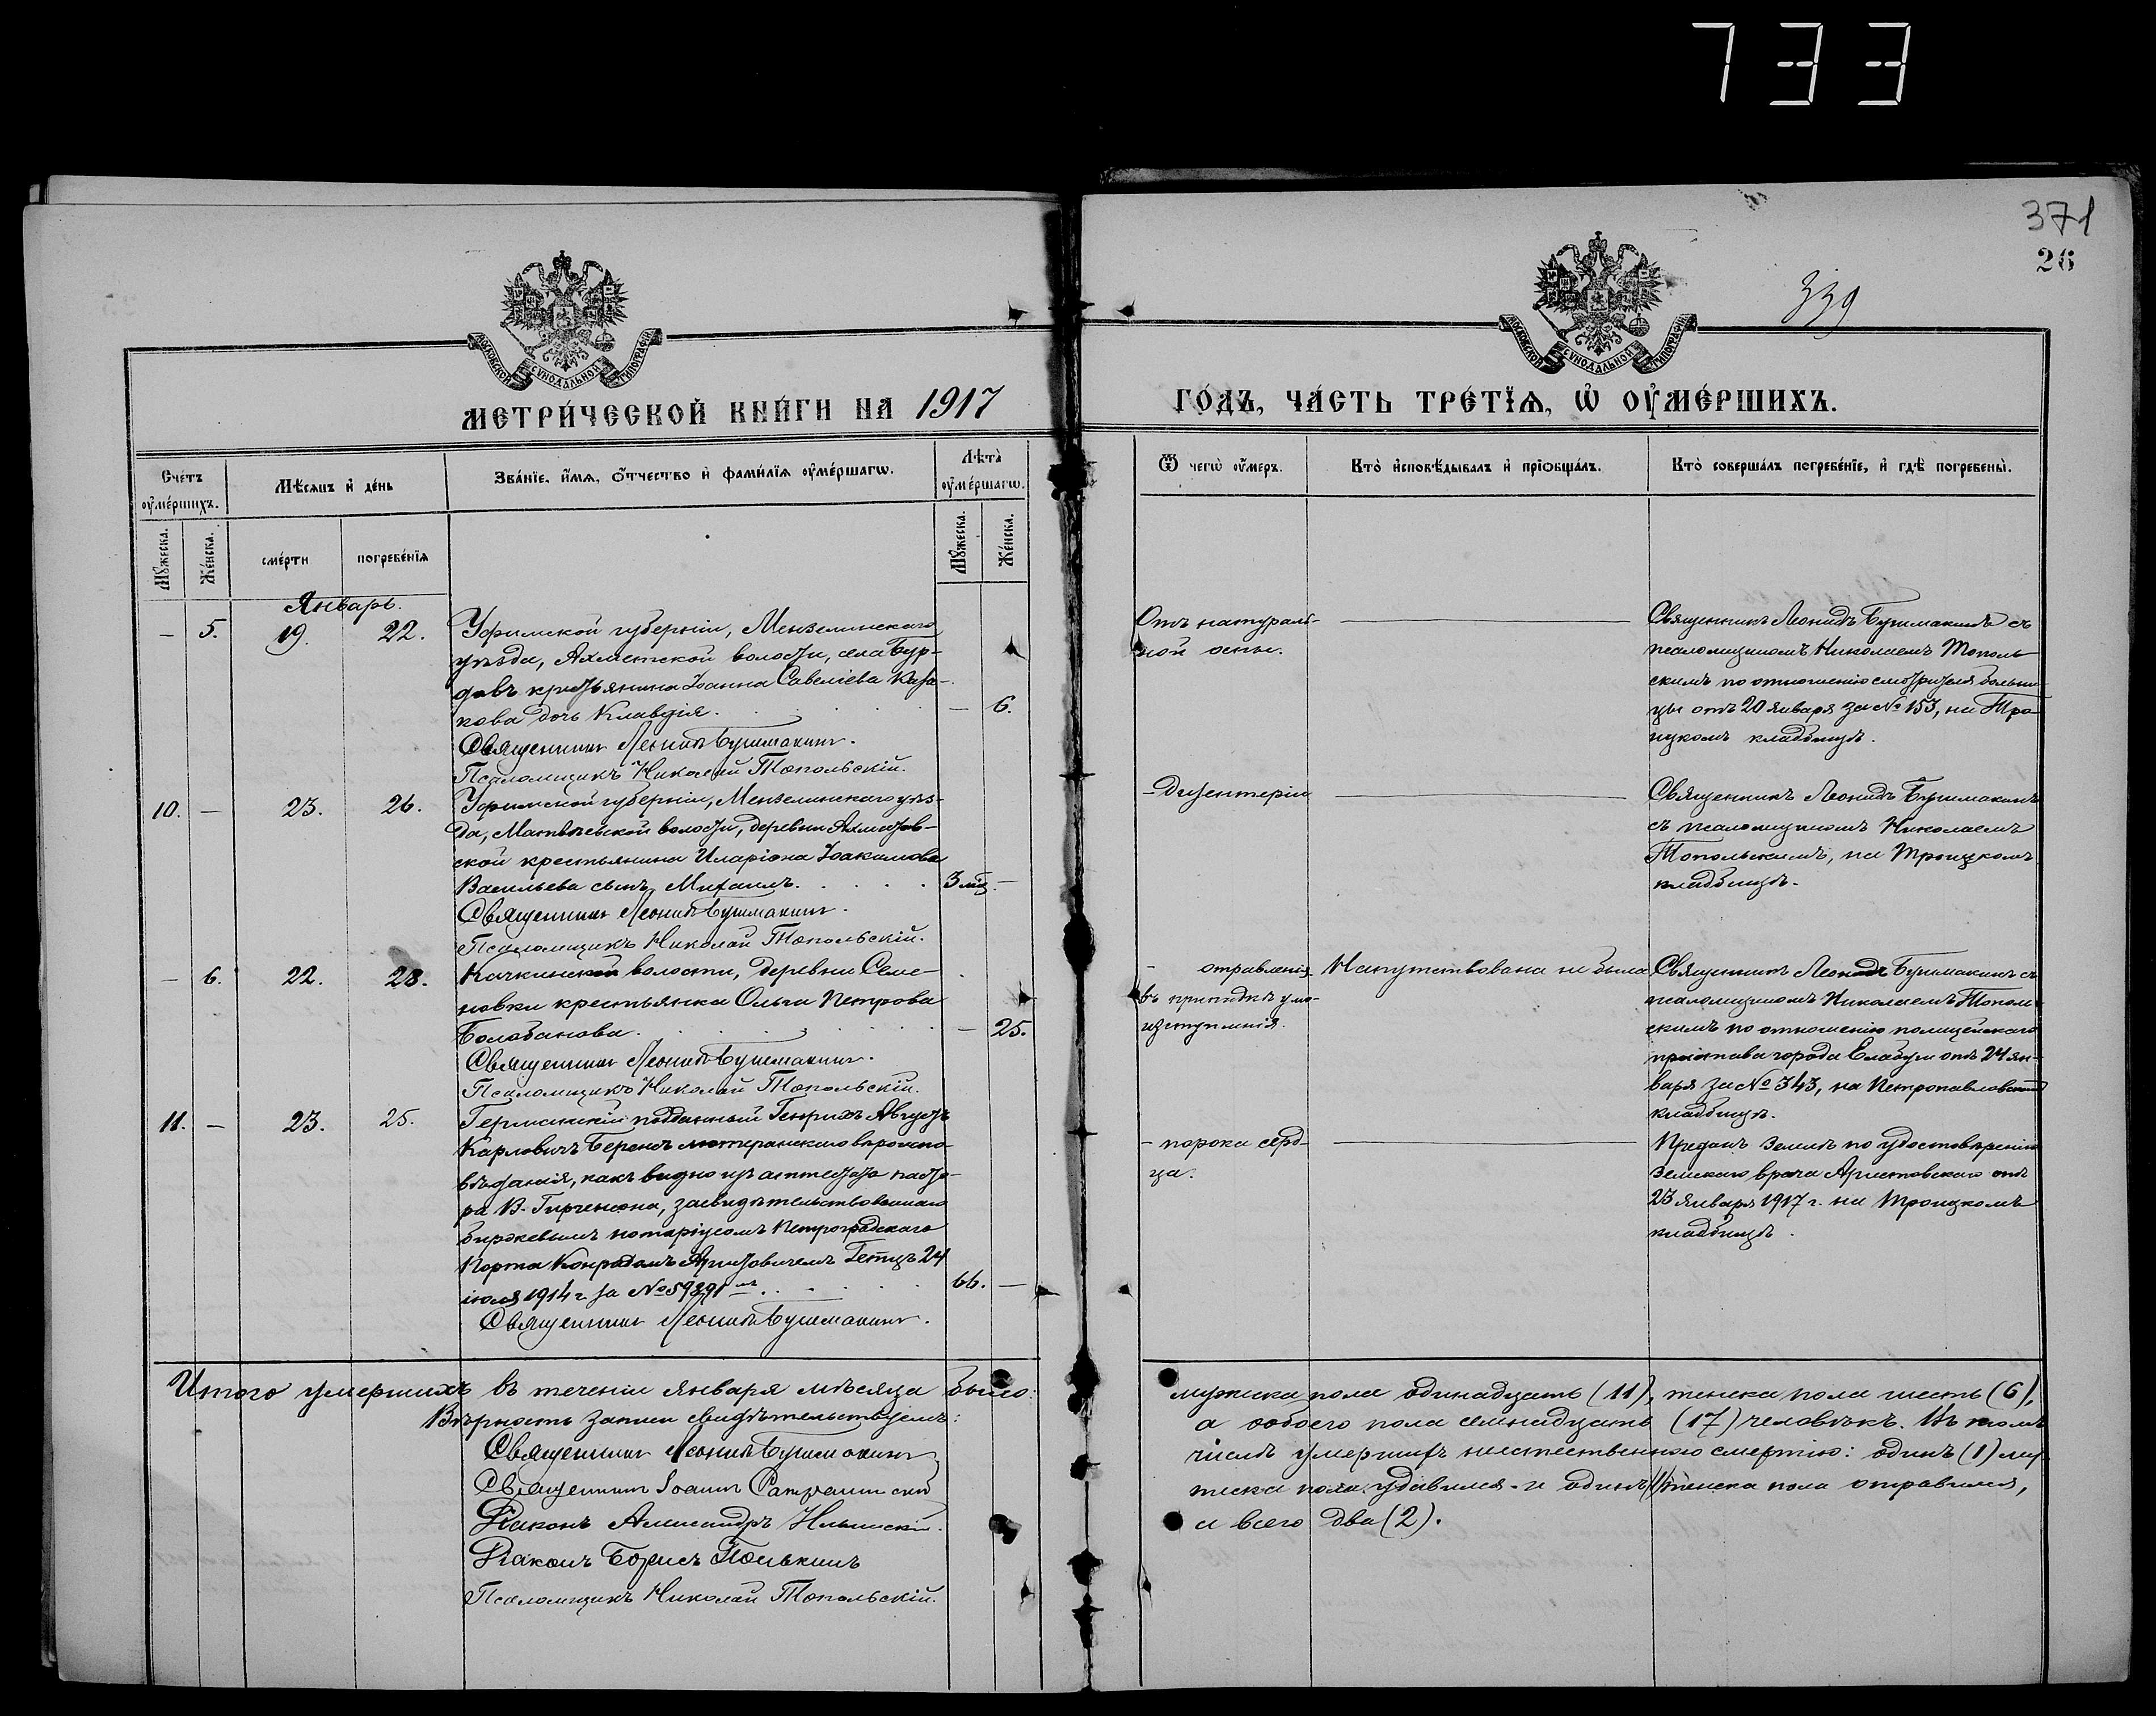 733
371
26
339
МОСКОВСКОЙ СѴНОДАЛЬНОЙ ТИПОГРАФІИ
МОСКОВСКОЙ СѴНОДАЛЬНОЙ ТИПОГРАФІИ
МЕТРИ́ЧЕСКОЙ КНИ́ГИ НА 1917 ГО́ДЪ, ЧА́СТЬ ТРЕ́ТЇѦ, Ѡ҆ ОУ҆МЕ́РШИХЪ.
Сче́тъ оу҆ме́ршихъ.
Мꙋ́жеска.
Же́нска.
Мѣ́сяцъ и҆ де́нь
сме́рти
погребе́нїѧ
Зва́нїе, и҆́мѧ, ѻ҆́тчество и҆ фами́лїѧ оу҆ме́ршагѡ.
Лѣ́та оу҆ме́ршагѡ.
Мꙋ́жеска.
Же́нска.
Ѿ чегѡ̀ оу҆́меръ.
Кто̀ и҆сповѣ́дывалъ и҆ прїѡбща́лъ.
Кто̀ соверша́лъ погребе́нїе, и҆ гдѣ̀ погребены̀.
Январь.
– 5. 19. 22.
Уфимской губерніи, Мензелинскаго
уѣзда, Ахметской волости, села Бур-
довъ крестьянина Іоанна Савеліева Каза-
кова дочь Клавдія. – 6.
Священникъ Леонидъ Бушмакинъ.
Псаломщикъ Николай Топольскій.
Отъ натураль-
ной оспы.
Священникъ Леонидъ Бушмакинъ съ
псаломщикомъ Николаемъ Тополь
скимъ по отношенію смотрителя больни-
цы отъ 20 января за № 153, на Трои
цкомъ кладбищѣ.
10. – 23. 26.
Уфимской губерніи, Мензелинскаго уѣз-
да, Матвѣевской волости, деревни Ахметов-
ской крестьянина Иларіона Іоакимова
Васильева сынъ Михаилъ. 3 мѣс. –
Священникъ Леонидъ Бушмакинъ.
Псаломщикъ Николай Топольскій.
– дизентеріи
Священникъ Леонидъ Бушмакинъ
съ псаломщикомъ Николаемъ
Топольскимъ, на Троицкомъ
кладбищѣ.
– 6. 22. 28.
Качкинской волости, деревни Семе-
новки крестьянка Ольга Петрова
Болобанова. – 25.
Священникъ Леонидъ Бушмакинъ.
Псаломщикъ Николай Топольскій.
– отравленія
въ припадкѣ умо-
изступленія.
Напутствована не была
Священникъ Леонидъ Бушмакинъ съ
псаломщикомъ Николаемъ Тополь
скимъ по отношенію полицейскаго
пристава города Елабуги отъ 24 ян-
варя за № 343, на Петропавловскомъ
кладбищѣ.
11. – 23. 25.
Германскій подданный Генрихъ Августъ
Карловичъ Берендъ лютеранскаго вѣроиспо-
вѣданія, какъ видно изъ аттестата пасто-
ра В. Гиргенсона, засвидѣтельствованнаго
биржевымъ нотаріусомъ Петроградскаго
Порта Конрадомъ Гетцъ 24
іюля 1914 г. за № 59891 66. –
Священникъ Леонидъ Бушмакинъ.
– порока серд-
ца.
Преданъ землѣ по удостовѣренію
Земскаго врача Аристовскаго отъ
23 января 1917 г. на Троицкомъ
кладбищѣ.
Итого умершихъ въ теченіи января мѣсяца было:
мужска пола одинадцать (11), женска пола шесть (6),
а обоего пола семнадцать (17) человѣкъ. Въ томъ
числѣ умершихъ неестественною смертію: одинъ (1) му
жеска пола удавился и одинъ (1) женска пола отравился,
а всего два (2).
Вѣрность записи свидѣтельствуемъ:
Священникъ Леонидъ Бушмакинъ
Священникъ Іоаннъ
Діаконъ Александръ Ильинскій.
Діаконъ Борисъ Понькинъ
Псаломщикъ Николай Топольскій.